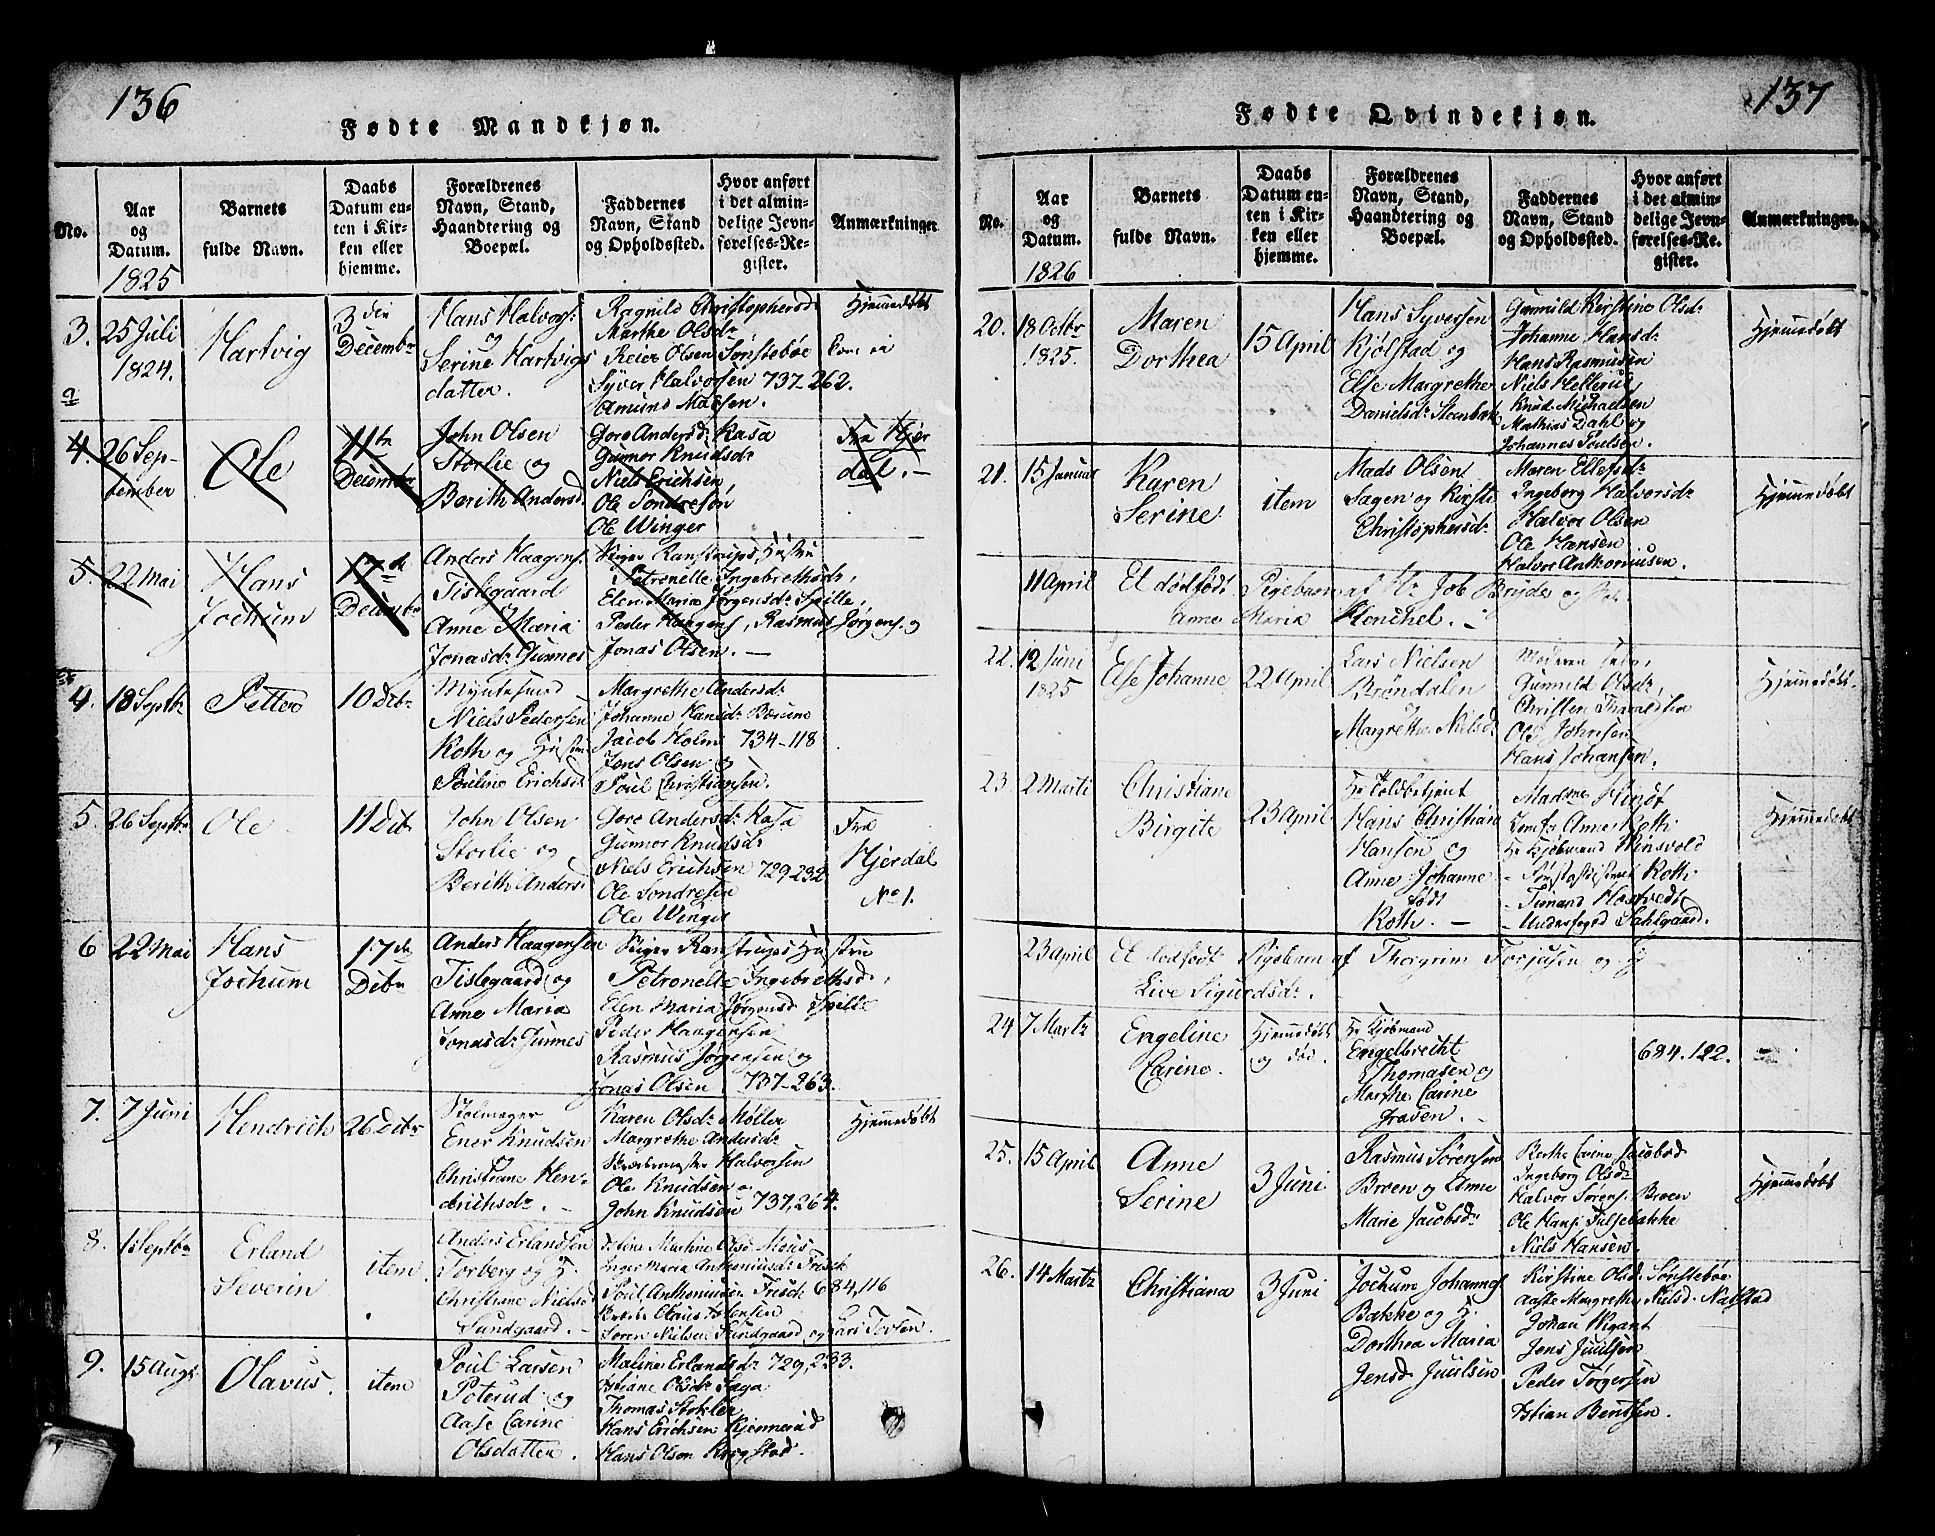 136
Fødte Mandkjøn.
No.
Aar og Datum.
1825
Barnets fulde Navn.
Daabs Datum enten i Kirken eller hjemme.
Forældrenes Navn, Stand, Haandtering og Boepæl.
Faddernes Navn, Stand og Opholdssted.
Hvor anført i det almindelige Jevnførelses-Register.
Anmærkninger
3.
25 Juli
1824.
Hartvig
3 die
Decembr
Hans Halvors:
og
Serine Hartvigs
datter.
Ragnild Christophersd:
Marthe Olsdr
Reier Olsen Sønstebøe
Syver Halvorsen 737-262.
Amund Madsen.
Hjemmedøbt
4.
26 Sep-
tember
Ole
11te
December
John Olsen
Storlie og
Berith Andersd.
Gore Andersd: Rasa
Gunnor Knudsdr
Niels Erichsen
Ole Sondresøn
Ole Winger
Fra Hjer
dal.-
5.
22 Mai
Hans
Jochum
17de
Decembr
Anders Haagens:
Tislegaard
Anne Maria
Jonasdr Gunnes
Petronelle Ingebrethsdr,
Elen Maria Jørgensdr Spille,
Peder Haagens, Rasmus Jørgens. og
Jonas Olsen. -
4.
18 Septbr
Petter
10 Debr
Niels Pedersen
Roth og Hustru
Pauline Erichsd:
Margrethe Andersdr
Johanne Hansdr Bærume
Jacob Holm 734-118
Jens Olsen og
Poul Christiansen.
5.
26 Septbr
Ole
11 Debr
John Olsen
Storlie og
Berith Andersd.
Gore Andersdr Rasa
Gunnor Knudsdr
Niels Erichsen 729-232
Ole Sondresen
Ole Winger
Fra
Hjerdal
No 1.
6
22 Mai
Hans
Jochum
17de
Debr
Anders Haagensen
Tislegaard og
Anne Maria
Jonasdr Gunnes
Petronelle Ingebrethsd.,
Elen Maria Jørgensd Spilde
Peder Haagensen
Rasmus Jørgensen og
Jonas Olsen. 737-263.
7.
7 Juni
Hendrich
26 Debr
Ener Knudsen
Christiane Hen-
drichsdr. -
Karen Olsdr Møller
Margrethe Andersdr
Halvorsen
Ole Knudsen og
John Knudsen 737,264.
Hjemmedøbt
8.
1 Septbr
Erland
Severin
item.
Anders Erlandsen
Torberg og H.
Christiane Nielsd
Sundgaard. -
Inger Maria Anthoniusdr Frisch
Poul Anthoniusen Frisch 684,116
Søren Nielsen Sundgaard og Lars Torsen.
9.
15 Aug.
Olavus.
item
Poul Larsen
Poterud og
Aase Carine
Olsdatter.
Maline Erlandsdr 729,233.
Thomas Stokler
Hans Erichsen Kjennerud
Hans Olsen Kragstad.
137
Fødte Qvindekjøn.
No.
Aar og Datum.
1826
Barnets fulde Navn.
Daabs Datum enten i Kirken eller hjemme.
Forældrenes Navn, Stand, Haandtering og Boepæl.
Faddernes Navn, Stand og Opholdssted.
Hvor anført i det almindelige Jevnførelses-Register.
Anmærkninger.
20.
18 Octbr
1825.
Maren
Dorthea
15 April
Hans Syversen
Kjølstad og
Else Margrethe
Danielsdr Steenbæk
Gunnild Kirstine Olsdr
Johanne Hansdr
Hans Rasmussen
Niels Hellerud
Knud Michaelsen
Mathias Dahl og
Johannes Poulsen.
Hjemmedøbt
21.
15 Januar
Karen
Serine
item
Mads Olsen
Sagen og Kirsti
Christophersdr
Maren Ellefsdr
Ingeborg Halvorsdr
Halvor Olsen
Ole Hansen
Halvor Anthoniusen.
Hjemmedøbt
11 April
Et dødfødt Pigebarn af Hr Job Bryde og
Anne Maria Henchel. -
22.
12 Juni
1825
Else Johanne
22 April
Lars Nielsen
Brøndalen
og
Margrethe Nielsd.
Moderen selv,
Gunnild Olsdr,
Christen Haraldsen
Ole Johnsen
Hans Johansen.
Hjemmedøbt.
23.
2 Marti
Christiane
Birgite
23 April
Hr Toldbetjent
Hans Christian
Hansen og
Anne Johanne
født
Roth. -
Madme Hindt
Jomfr Anne Roth
Hr Kjøbmand Winsvold
Roth
- Timand Hostvedt
- Underfoged Dahlgaard.
Hjemmedøbt
23 April
Et dødfødt Pigebarn af Thorgrim Torjusen og H
Live Sigurdsdr.
24
7 Martz
Engeline
Carine.
Hjemmedøbt
og død.
Hr Kjøbmand
Engelbrecht
Thomasen og
Marthe Carine
Irgen. -
684.122.
25.
15 April
Anne
Serine
3 Juni
Rasmus Sørensen
Broen og Anne
Marie Jacobsdr
Berthe Carine Jacobsd
Ingeborg Olsdr
Halvor Sørens. Broen
Ole Hans: Fulsebakke
Niels Hansen.
Hjemmedøbt
26.
14 Martz
Christiana
3 Juni
Jochum Johannes
Bakke og H.
Dorthea Maria
Jensd Juulsen
Kirstine Olsd. Sønstebøe
Aaste Margrethe Nielsd. Nalstad
Johan Wigant
Jens Juulsen
Peder Tørgersen
Kstian Bentsen.